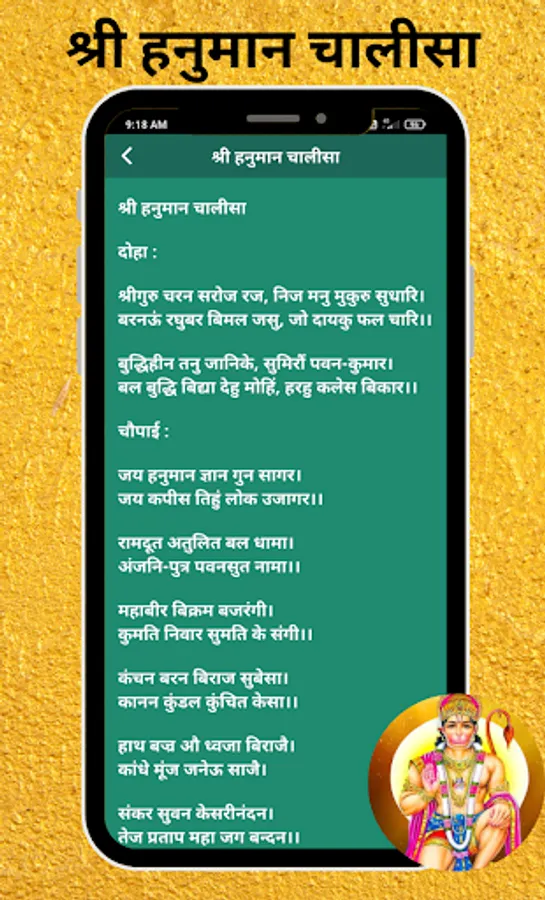 श्री हनुमान चालीसा
9:18 AM
श्री हनुमान चालीसा
श्री हनुमान चालीसा
दोहा :
श्रीगुरु चरन सरोज रज, निज मनु मुकुरु सुधारि।
बरनऊं रघुबर बिमल जसु, जो दायकु फल चारि।।
बुद्धिहीन तनु जानिके, सुमिरौं पवन-कुमार।
बल बुद्धि बिद्या देहु मोहिं, हरहु कलेस बिकार।।
चौपाई :
जय हनुमान ज्ञान गुन सागर।
जय कपीस तिहुं लोक उजागर।।
रामदूत अतुलित बल धामा।
अंजनि-पुत्र पवनसुत नामा।।
महाबीर बिक्रम बजरंगी।
कुमति निवार सुमति के संगी।।
कंचन बरन बिराज सुबेसा।
कानन कुंडल कुंचित केसा।।
हाथ बज्र औ ध्वजा बिराजै।
कांधे मूंज जनेऊ साजै।
संकर सुवन केसरीनंदन।
तेज प्रताप महा जग बन्दन।।